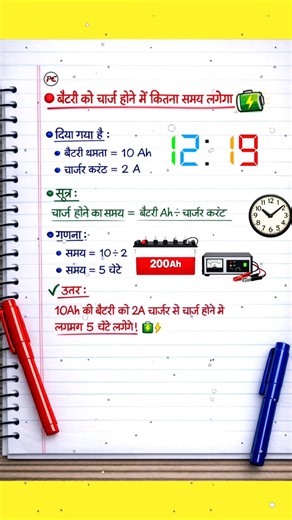 PC
बैटरी को चार्ज होने में कितना समय लगेगा
दिया गया है :
बैटरी क्षमता = 10 Ah
चार्जर करंट = 2 A
12:19
सूत्र :
चार्ज होने का समय = बैटरी Ah ÷ चार्जर करंट
गणना :
समय = 10 ÷ 2
समय = 5 घंटे
200Ah
12
1
2
3
4
5
6
7
8
9
10
11
उत्तर :
10Ah की बैटरी को 2A चार्जर से चार्ज होने मे
लगभग 5 घंटे लगेंगे!